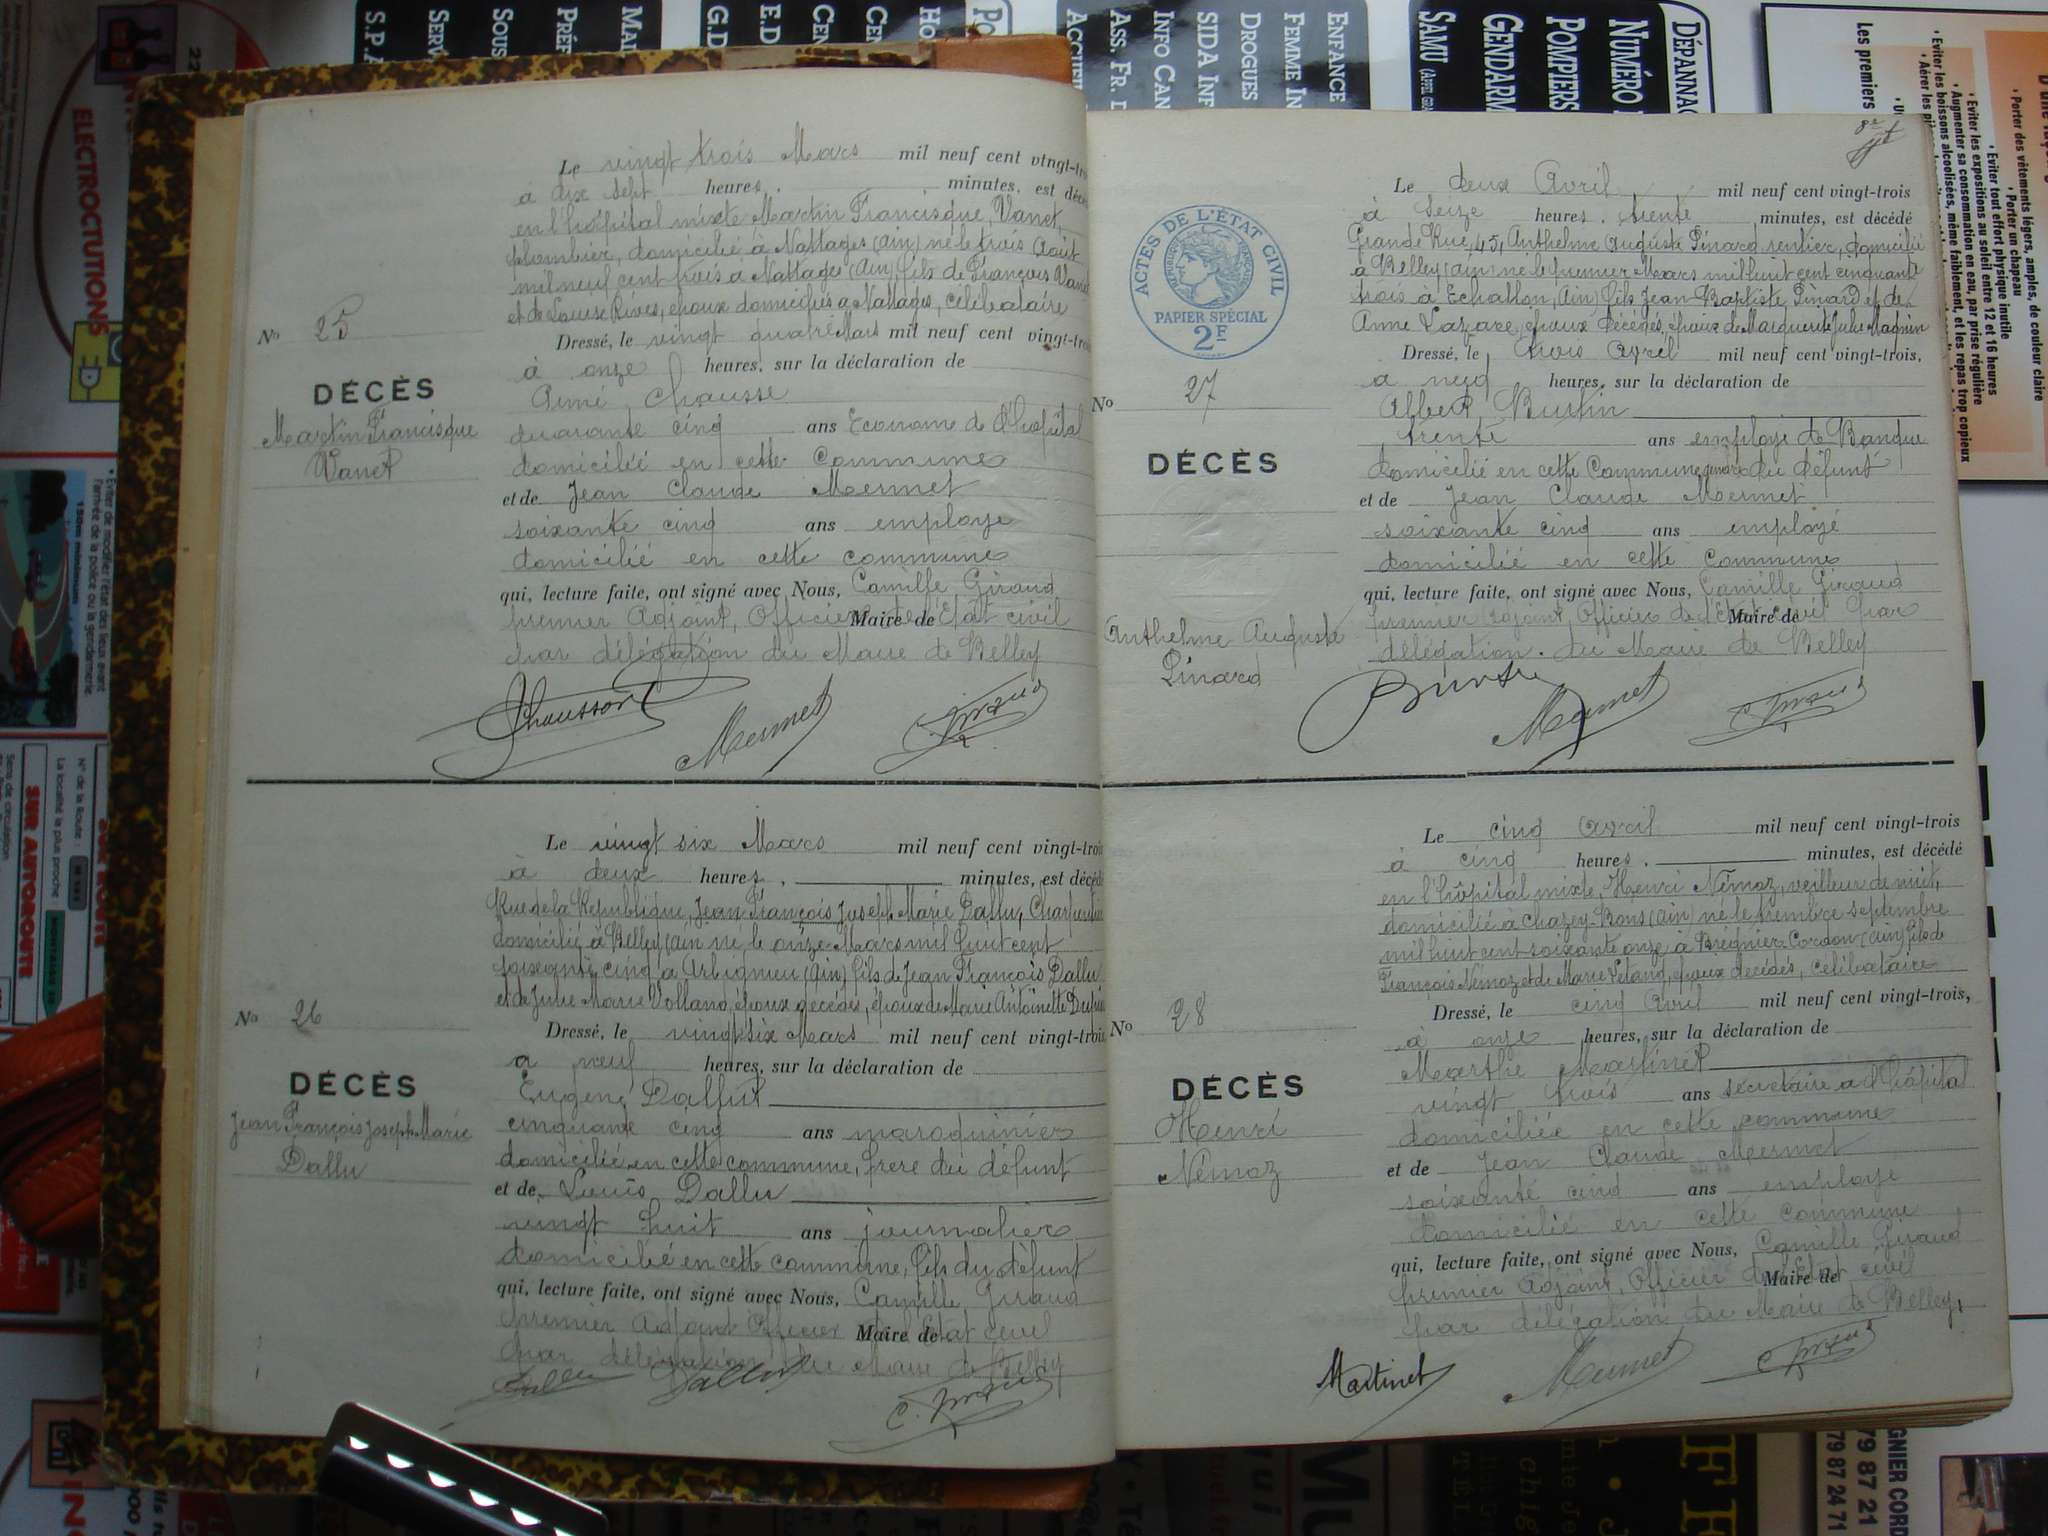 Le vingt trois Mars mil neuf cent vingt-trois
à dix sept heures, minutes, est décé
en l'hôpital mixte Martin Francisque Vanet,
plombier, domicilié à Nattages (Ain) né le trois Août
mil neuf cent trois à Nattages (Ain) fils de François Vanet
et de Louise Rives, époux domiciliés à Nattages, célibataire
No 25
Dressé, le vingt quatre Mars mil neuf cent vingt-trois
à onze heures, sur la déclaration de
DÉCÈS
Aimé Chausse
Martin Francisque
Vanet
quarante cinq ans Econome de l'hopital
domiciliée en cette commune
et de Jean Claude Mermet
soixante cinq ans employe
domicilié en cette commune
qui, lecture faite, ont signé avec Nous, Camille Giraud
premier Adjoint, Officier Maire de de l'Etat civil
par délégation du Maire de Belley
Chausson Mermet C. Giraud
Le vingt six Mars mil neuf cent vingt-trois
à deux heures, minutes, est décédé
Rue de la République, Jean François Joseph Marie Dallu, Charpentier
domicilié à Belley (Ain né le onze Mars mil huit cent
soixante cinq à Arbignieu (Ain) fils de Jean François Dallu
et de Julie Marie époux décédés, époux de Marie Antoinette
No 26
Dressé, le vingt six Mars mil neuf cent vingt-trois
à neuf heures, sur la déclaration de
DÉCÈS
Eugène Dallut
Jean François Joseph Marie
Dallu
cinquante cinq ans maroquinier
domicilié en cette commune, frère du défunt
et de Louis Dallu
vingt huit ans journalier
domicilié en cette commune, fils du défunt
qui, lecture faite, ont signé avec Nous, Camille Giraud
premier Adjoint Officier Maire de l'Etat civil
par délégation du Maire de Belley
Dallu Dallu C. Giraud
Le deux Avril mil neuf cent vingt-trois
à seize heures, trente minutes, est décédé
Grande Rue, 45, Anthelme Auguste Pinard rentier, domicilié
à Belley (Ain) né le premier Mars mil huit cent cinquante
trois à Echallon (Ain) fils Jean-Baptiste Pinard et de
Anne Lazare, époux décédés, époux de Marguerite Julie Magnin
ACTES DE L'ÉTAT CIVIL
PAPIER SPÉCIAL
2F
Dressé, le trois Avril mil neuf cent vingt-trois,
No 27
à neuf heures, sur la déclaration de
Albert Burtin
DÉCÈS
trente ans employé de Banque
domicilié en cette Commune gendre du défunt
et de Jean Claude Mermet
soixante cinq ans employé
domicilié en cette commune
qui, lecture faite, ont signé avec Nous, Camille Giraud
premier adjoint, Officier de l'Etat civil Maire de par
délégation du Maire de Belley
Anthelme Auguste
Pinard
Burtin Mermet C. Giraud
Le cinq Avril mil neuf cent vingt-trois
à cinq heures, minutes, est décédé
en l'hôpital mixte, Henri Némoz, veilleur de nuit,
domicilié à Chazey-Bons (Ain) né le trente septembre
mil huit cent soixante onze à Brégnier-Cordon (Ain) fils de
François Némoz et de Marie époux décédés, célibataire
Dressé, le cinq Avril mil neuf cent vingt-trois,
No 28
à onze heures, sur la déclaration de
Marthe Martinet
DÉCÈS
Henri
Némoz
vingt trois ans secrétaire à l'hôpital
domiciliée en cette commune
et de Jean Claude Mermet
soixante cinq ans employe
domicilié en cette commune
qui, lecture faite, ont signé avec Nous, Camille Giraud
premier Adjoint, Officier de l'Etat Maire de civil
par délégation du Maire de Belley,
Martinet Mermet C. Giraud
ELECTROCUTIONS
SUR AUTOROUTE
ENFANCE
FEMME IN
DROGUES
SIDA INF
INFO CAN
ASS. FR. D
ACCUEIL
DÉPANNAG
NUMÉRO
POMPIERS
GENDARM
SAMU
Les premiers
• Porter des vêtements légers, amples, de couleur claire
• Porter un chapeau
• Eviter tout effort physique inutile
• Eviter les expositions au soleil entre 12 et 16 heures
• Augmenter sa consommation en eau, par prise régulière
• Eviter les boissons alcoolisées, même faiblement, et les repas trop copieux
GNIER CORD
79 87 21
79 87 24 71